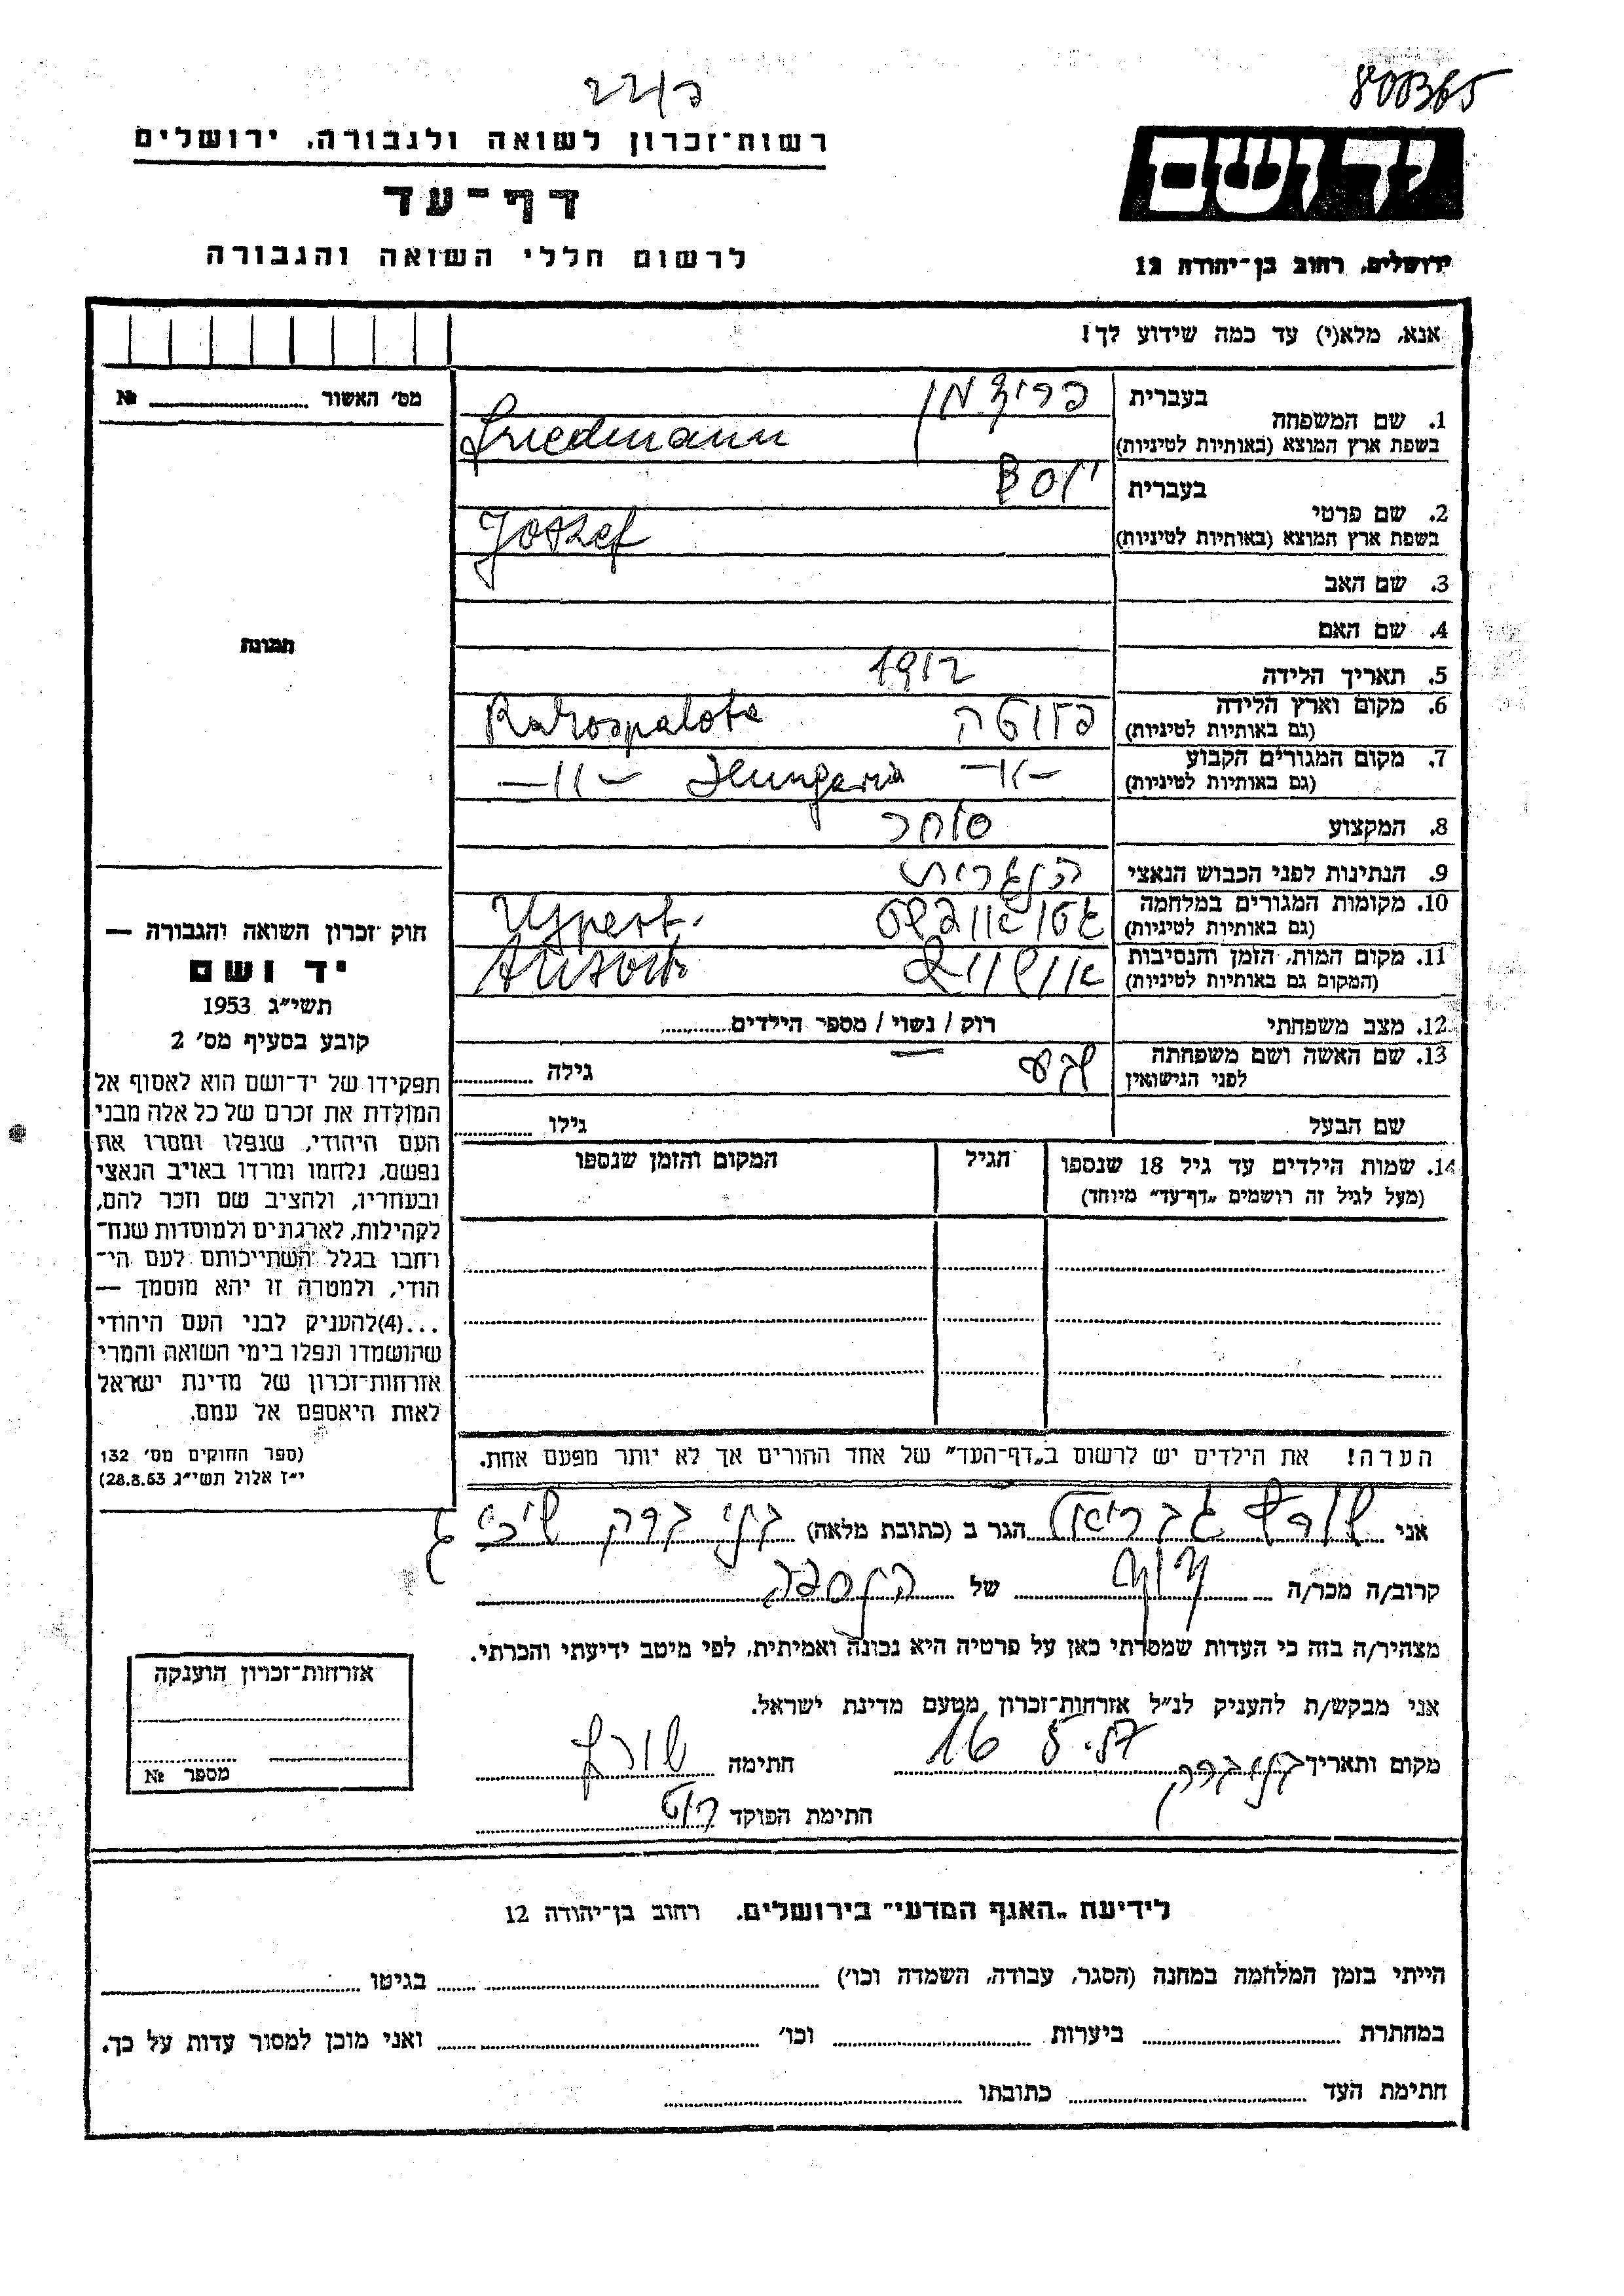 פ/22
800365
רשות־זכרון לשואה ולגבורה, ירושלים
דף־עד
לרשום חללי השואה והגבורה
יד ושם
ירושלים, רחוב בן־יהודה 12
אנא, מלא(י) עד כמה שידוע לך!
מס׳ האשור №
תמונה
1. שם המשפחה
בעברית פרידמן
בשפת ארץ המוצא (באותיות לטיניות) Friedmann
2. שם פרטי
בעברית יוסף
בשפת ארץ המוצא (באותיות לטיניות) Joszef
3. שם האב
4. שם האם
5. תאריך הלידה 1912
6. מקום וארץ הלידה
(גם באותיות לטיניות) Rakospalota
7. מקום המגורים הקבוע
(גם באותיות לטיניות) —״— Hungaria —״—
8. המקצוע סוחר
9. הנתינות לפני הכבוש הנאצי הונגרית
10. מקומות המגורים במלחמה
(גם באותיות לטיניות) Ujpest.
11. מקום המות, הזמן והנסיבות
(המקום גם באותיות לטיניות) אושוויץ
12. מצב משפחתי רוק / נשוי / מספר הילדים
13. שם האשה ושם משפחתה
לפני הנישואין
גילה
שם הבעל גילו
14. שמות הילדים עד גיל 18 שנספו הגיל המקום והזמן שנספו
(מעל לגיל זה רושמים „דף־עד״ מיוחד)
הערה! את הילדים יש לרשום ב„דף־העד״ של אחד ההורים אך לא יותר מפעם אחת.
חוק זכרון השואה והגבורה —
יד ושם
תשי״ג 1953
קובע בסעיף מס׳ 2
תפקידו של יד־ושם הוא לאסוף אל
המולדת את זכרם של כל אלה מבני
העם היהודי, שנפלו ומסרו את
נפשם, נלחמו ומרדו באויב הנאצי
ובעוזריו, ולהציב שם וזכר להם,
לקהילות, לארגונים ולמוסדות שנח־
רחבו בגלל השתייכותם לעם הי־
הודי, ולמטרה זו יהא מוסמך —
...(4)להעניק לבני העם היהודי
שהושמדו ונפלו בימי השואה והמרי
אזרחות־זכרון של מדינת ישראל
לאות היאספם אל עמם.
(ספר החוקים מס׳ 132
י״ז אלול תשי״ג 28.8.53)
אני שורץ גבריאל הגר ב (כתובת מלאה) בני ברק
קרוב/ה מכר/ה של הנספה
מצהיר/ה בזה כי העדות שמסרתי כאן על פרטיה היא נכונה ואמיתית, לפי מיטב ידיעתי והכרתי.
אני מבקש/ת להעניק לנ״ל אזרחות־זכרון מטעם מדינת ישראל.
מקום ותאריך בני ברק 16 5. 57 חתימה שורץ
חתימת הפוקד
אזרחות־זכרון הוענקה
מספר №
לידיעת „האגף המדעי״ בירושלים, רחוב בן־יהודה 12
הייתי בזמן המלחמה במחנה (הסגר, עבודה, השמדה וכו׳) בגיטו
במחתרת ביערות וכו׳ ואני מוכן למסור עדות על כך.
חתימת העד כתובתו